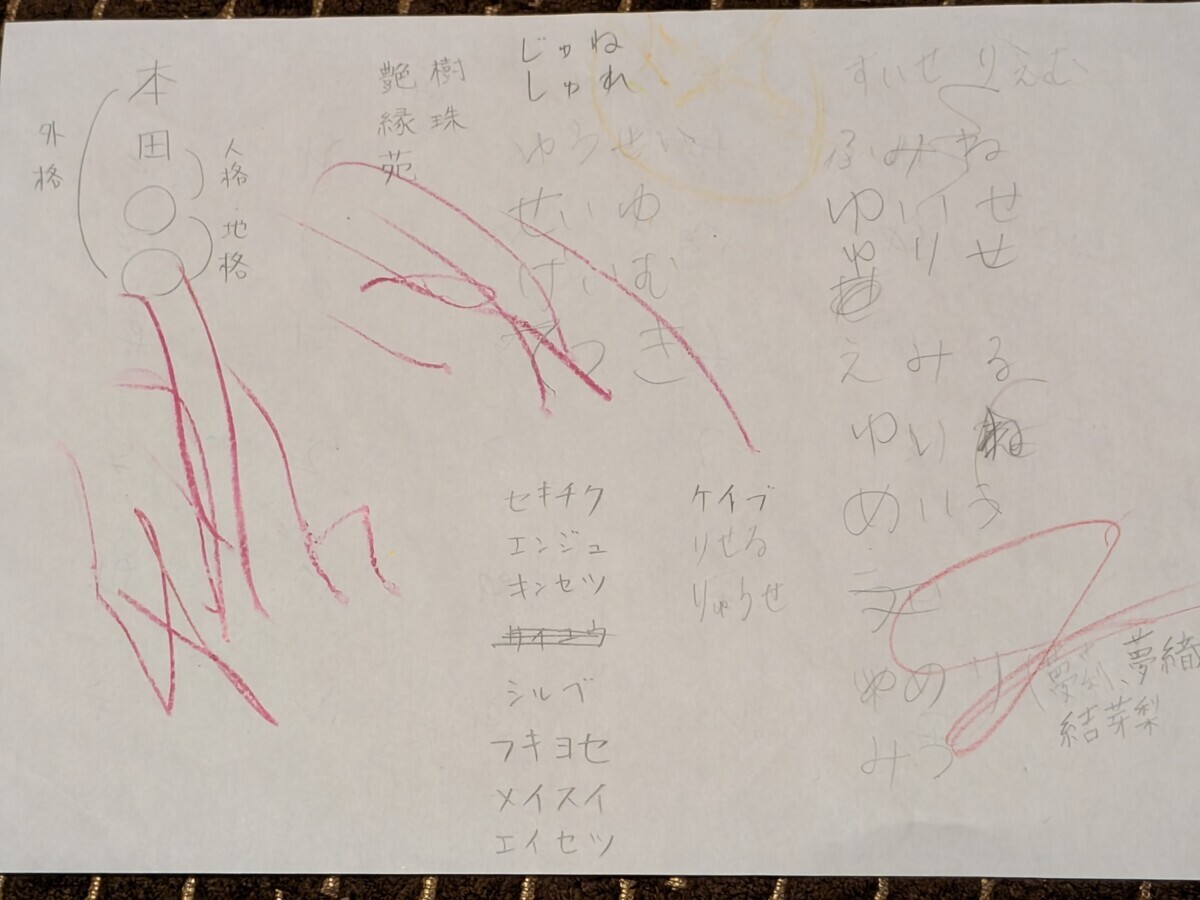 本田○○
外格
人格・地格
樹珠
艶縁苑
じゅね
しゅれ
ゆうせい
せいゆ
げいむ
てつき
セキチク
エンジュ
キンセツ
サイユウ
シルベ
フキヨセ
メイスイ
エイセツ
ケイブ
りせる
りゅうせ
すいせ りえむ
ふみね
ゆいせ
ゆりせ
えみる
ゆい
めい
ゆめり(夢莉、夢織
結芽梨
みう